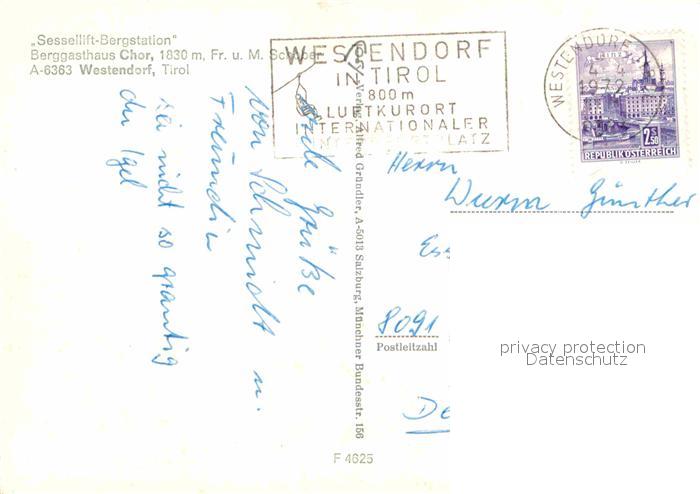 „Sessellift-Bergstation"
Berggasthaus Chor, 1830 m, Fr. u. M.
A-6363 Westendorf, Tirol
WESTENDORF
IN TIROL
800 m
LUFTKURORT
INTERNATIONALER
WESTENDORF
4. 4.
1972
LINZ
2S50
REPUBLIK ÖSTERREICH
Viele Grüße
von Schmidt u.
Freundin
sei nicht so grantig
du Igel
Verlag Alfred Gründler, A-5013 Salzburg, Münchner Bundesstr. 156
Herrn
Günther
8091
Postleitzahl
De
privacy protection
Datenschutz
F 4625